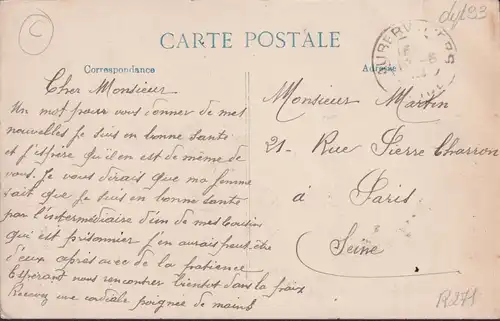 C
dept 93
CARTE POSTALE
Correspondance
Adresse
AUBERVILLIERS
Cher Monsieur
Un mot pour vous donner de mes
nouvelles Je suis en bonne sante
et j'espère qu'il en est de même de
vous. Je vous dirais que ma femme
sait que je suis en bonne santé
par l'intermédiaire d'un de mes Cousins
qui est prisonnier j'en aurais peut-être
d'eux après avec de la patience
Espérant nous rencontrer bientot dans la paix
Recevez une cordiale poignee de mains
Monsieur Martin
21- Rue Pierre Charron
à Paris
Seine
R271